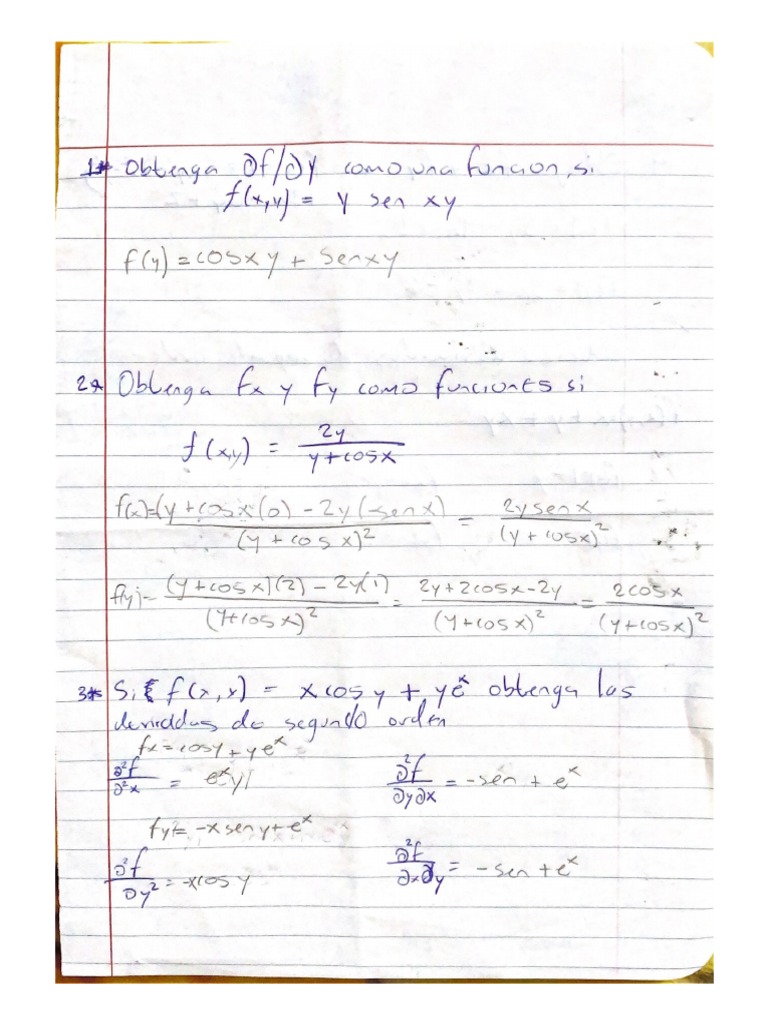 1* Obtenga ∂f/∂y como una funcion, si
f(x,y) = y sen xy
f(y) = cosxy + senxy
2* Obtenga fx y fy como funciones si
f(x,y) = 2y / (y+cosx)
f(x)=(y+cosx(0) - 2y(-senx) / (y + cos x)² = 2y senx / (y + cosx)²
f(y)= (y+cosx)(2) - 2y(1) / (y+cosx)² = 2y+2cosx-2y / (y+cosx)² = 2cosx / (y+cosx)²
3* Si f(x,x) = xcosy + ye^x obtenga las
deriveddas de segundo orden
fx=cosy+ye^x =
∂²f/∂²x = e^x y ∂²f/∂y∂x = -sen + e^x
fy= -x seny+e^x
∂²f/∂y² = -xcosy ∂²f/∂x∂y = -sen +e^x